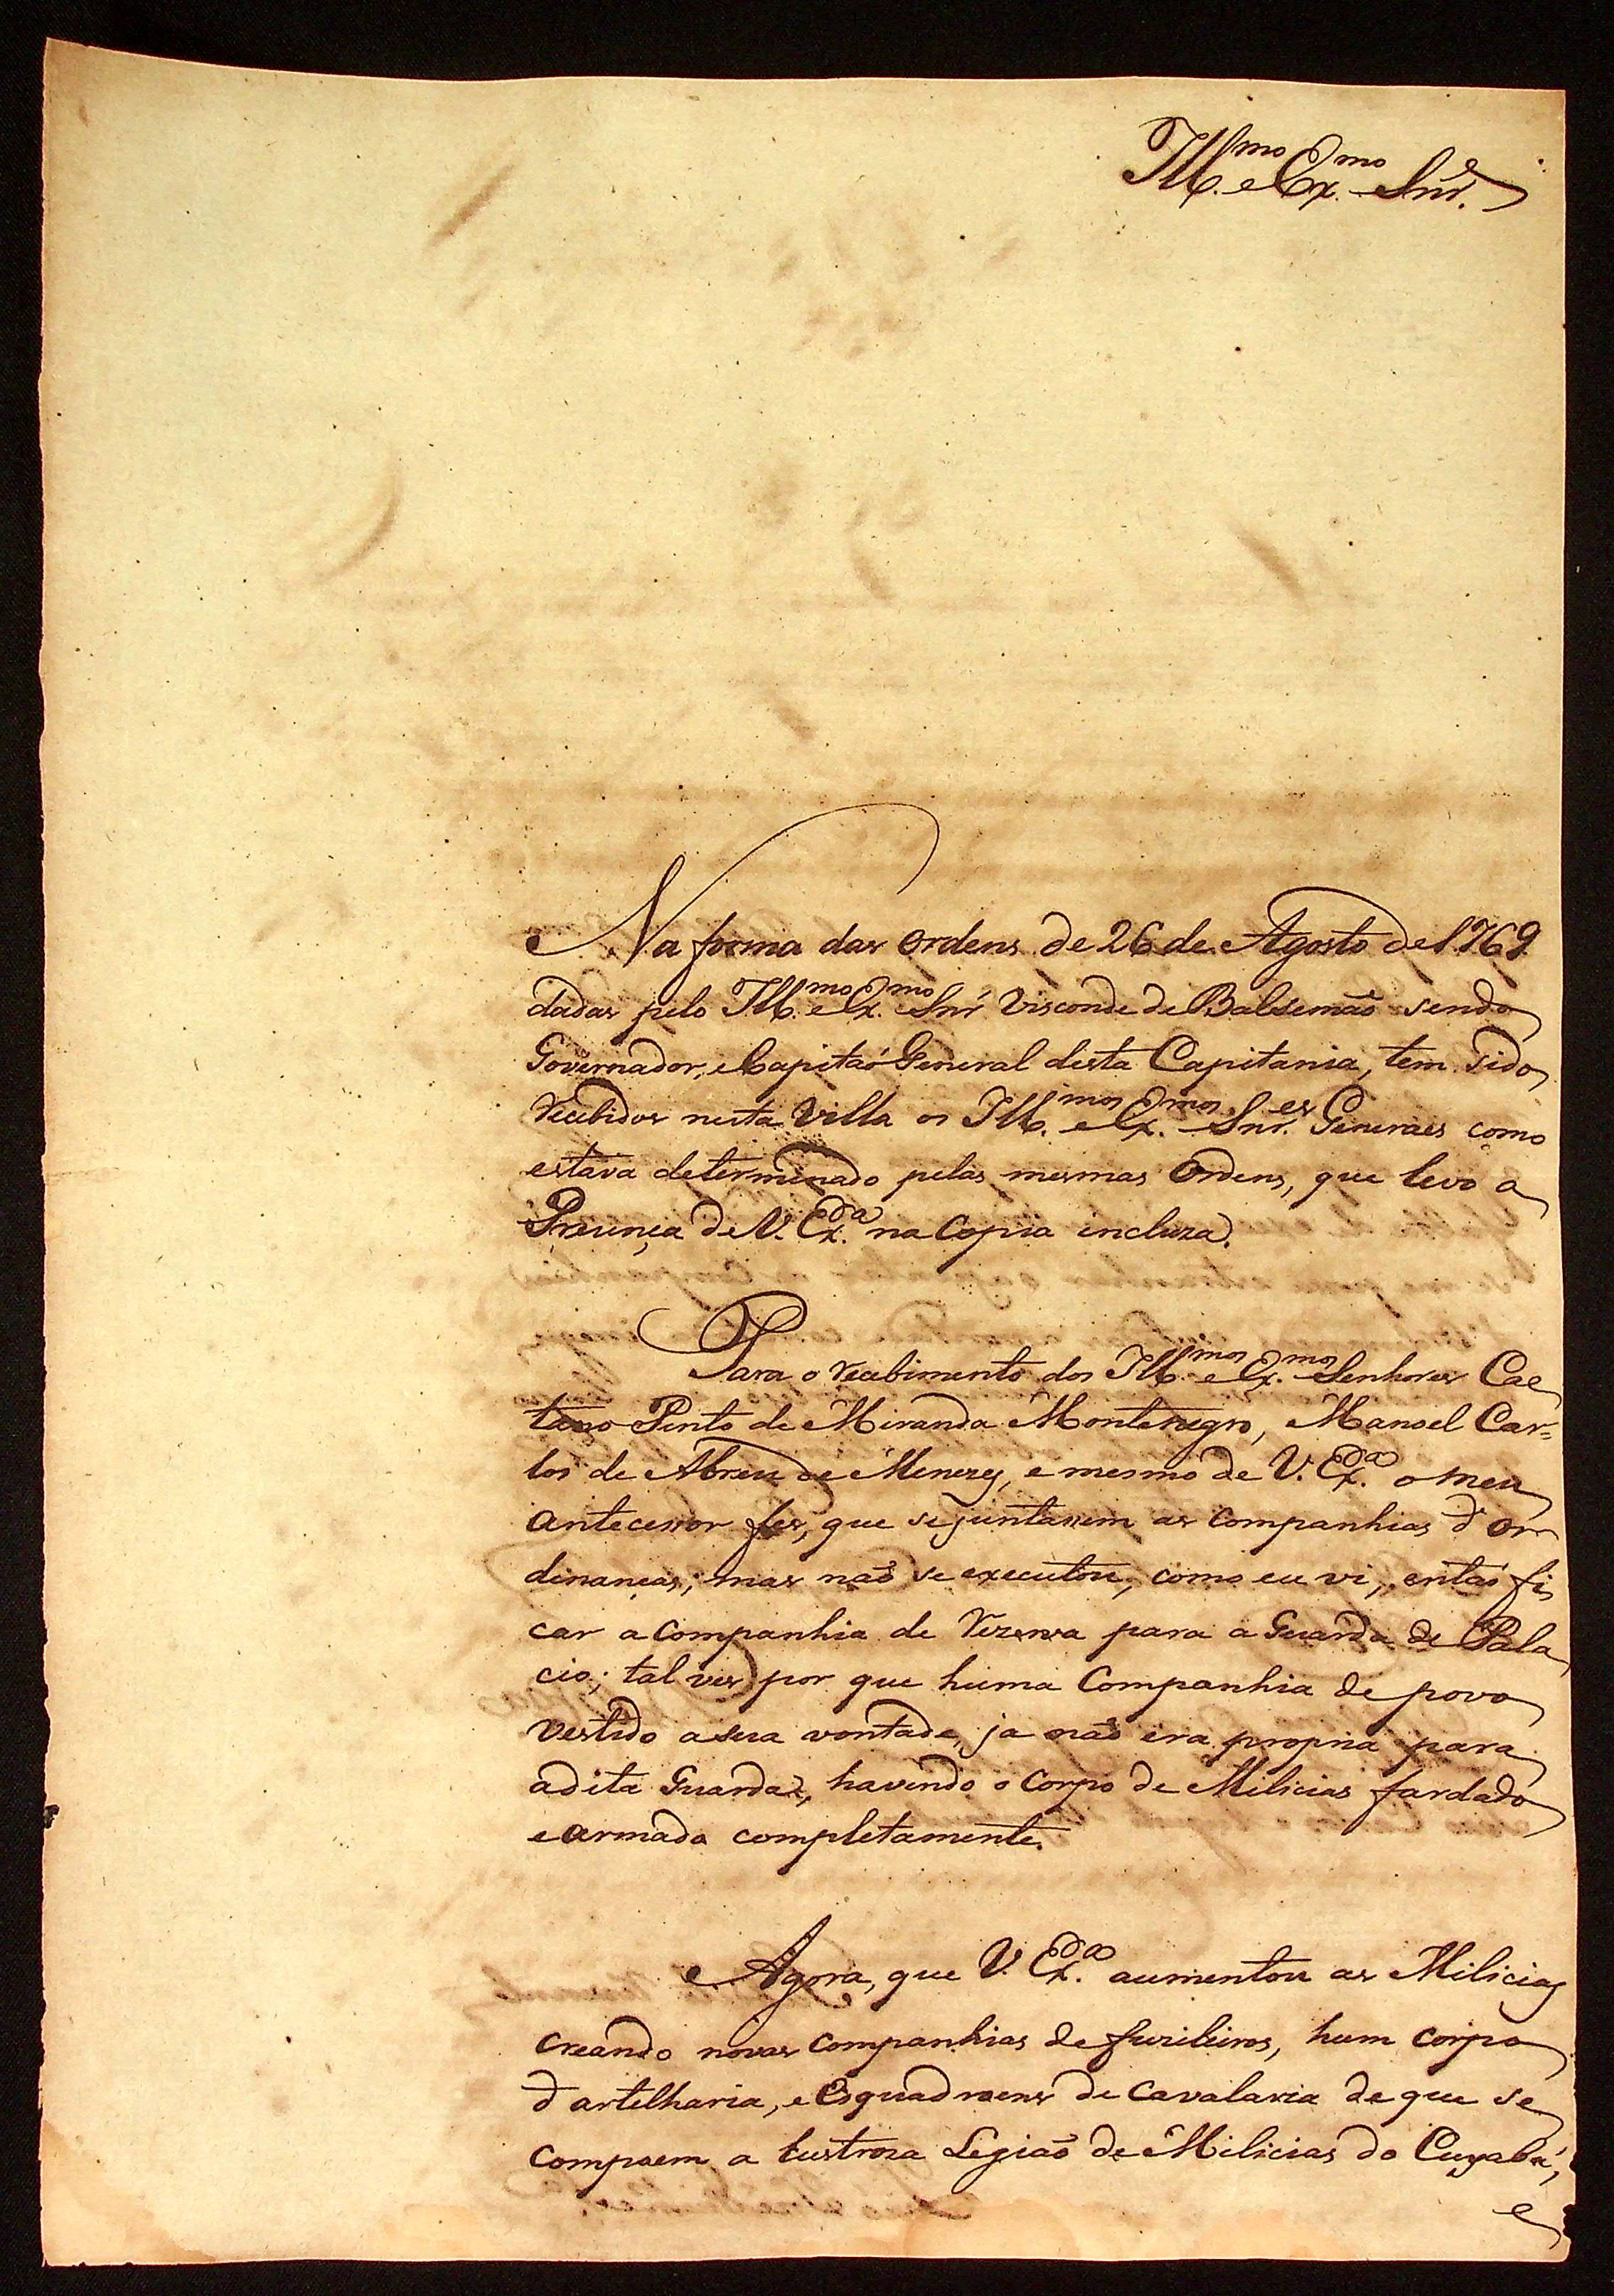 Ill.mo e Ex.mo Snr.
Na forma das ordens de 26 de Agosto de 1769
dadas pelo Ill.mo e Ex.mo Snr Visconde de Balsemaõ sendo
Governador, e Capitaõ General desta Capitania, tem sido
recebidos nesta Villa os Ill.mos e Ex.mos Snr.es Generaes como
estava determinado pelas mesmas Ordens, que levo a
Prezença de V. Ex.cia na Copia incluza.
Para o recebimento dos Ill.mos e Ex.mos Senhores Cae
tano Pinto de Miranda Montenegro, Manoel Car=
los de Abreu de Menezes, e mesmo de V. Ex.cia o meu
antecessor fes, que se juntassem as companhias d'or
denanças; mas naõ se executou, como eu vi, entaõ fi
car a companhia de rezerva para a Guarda de Pala
cio; tal ves por que huma Companhia de povo
vestido a sua vontade, ja naõ era propria para
a dita Guarda, havendo o Corpo de Milicias fardado
e armado completamente.
Agora, que V. Ex.cia aumentou as Milicias
creando novas companhias de fuzileiros, hum corpo
d'artelharia, e Esquadroens de Cavalaria de que se
compoem a lustroza Legiaõ de Milicias do Cuyabá,
e